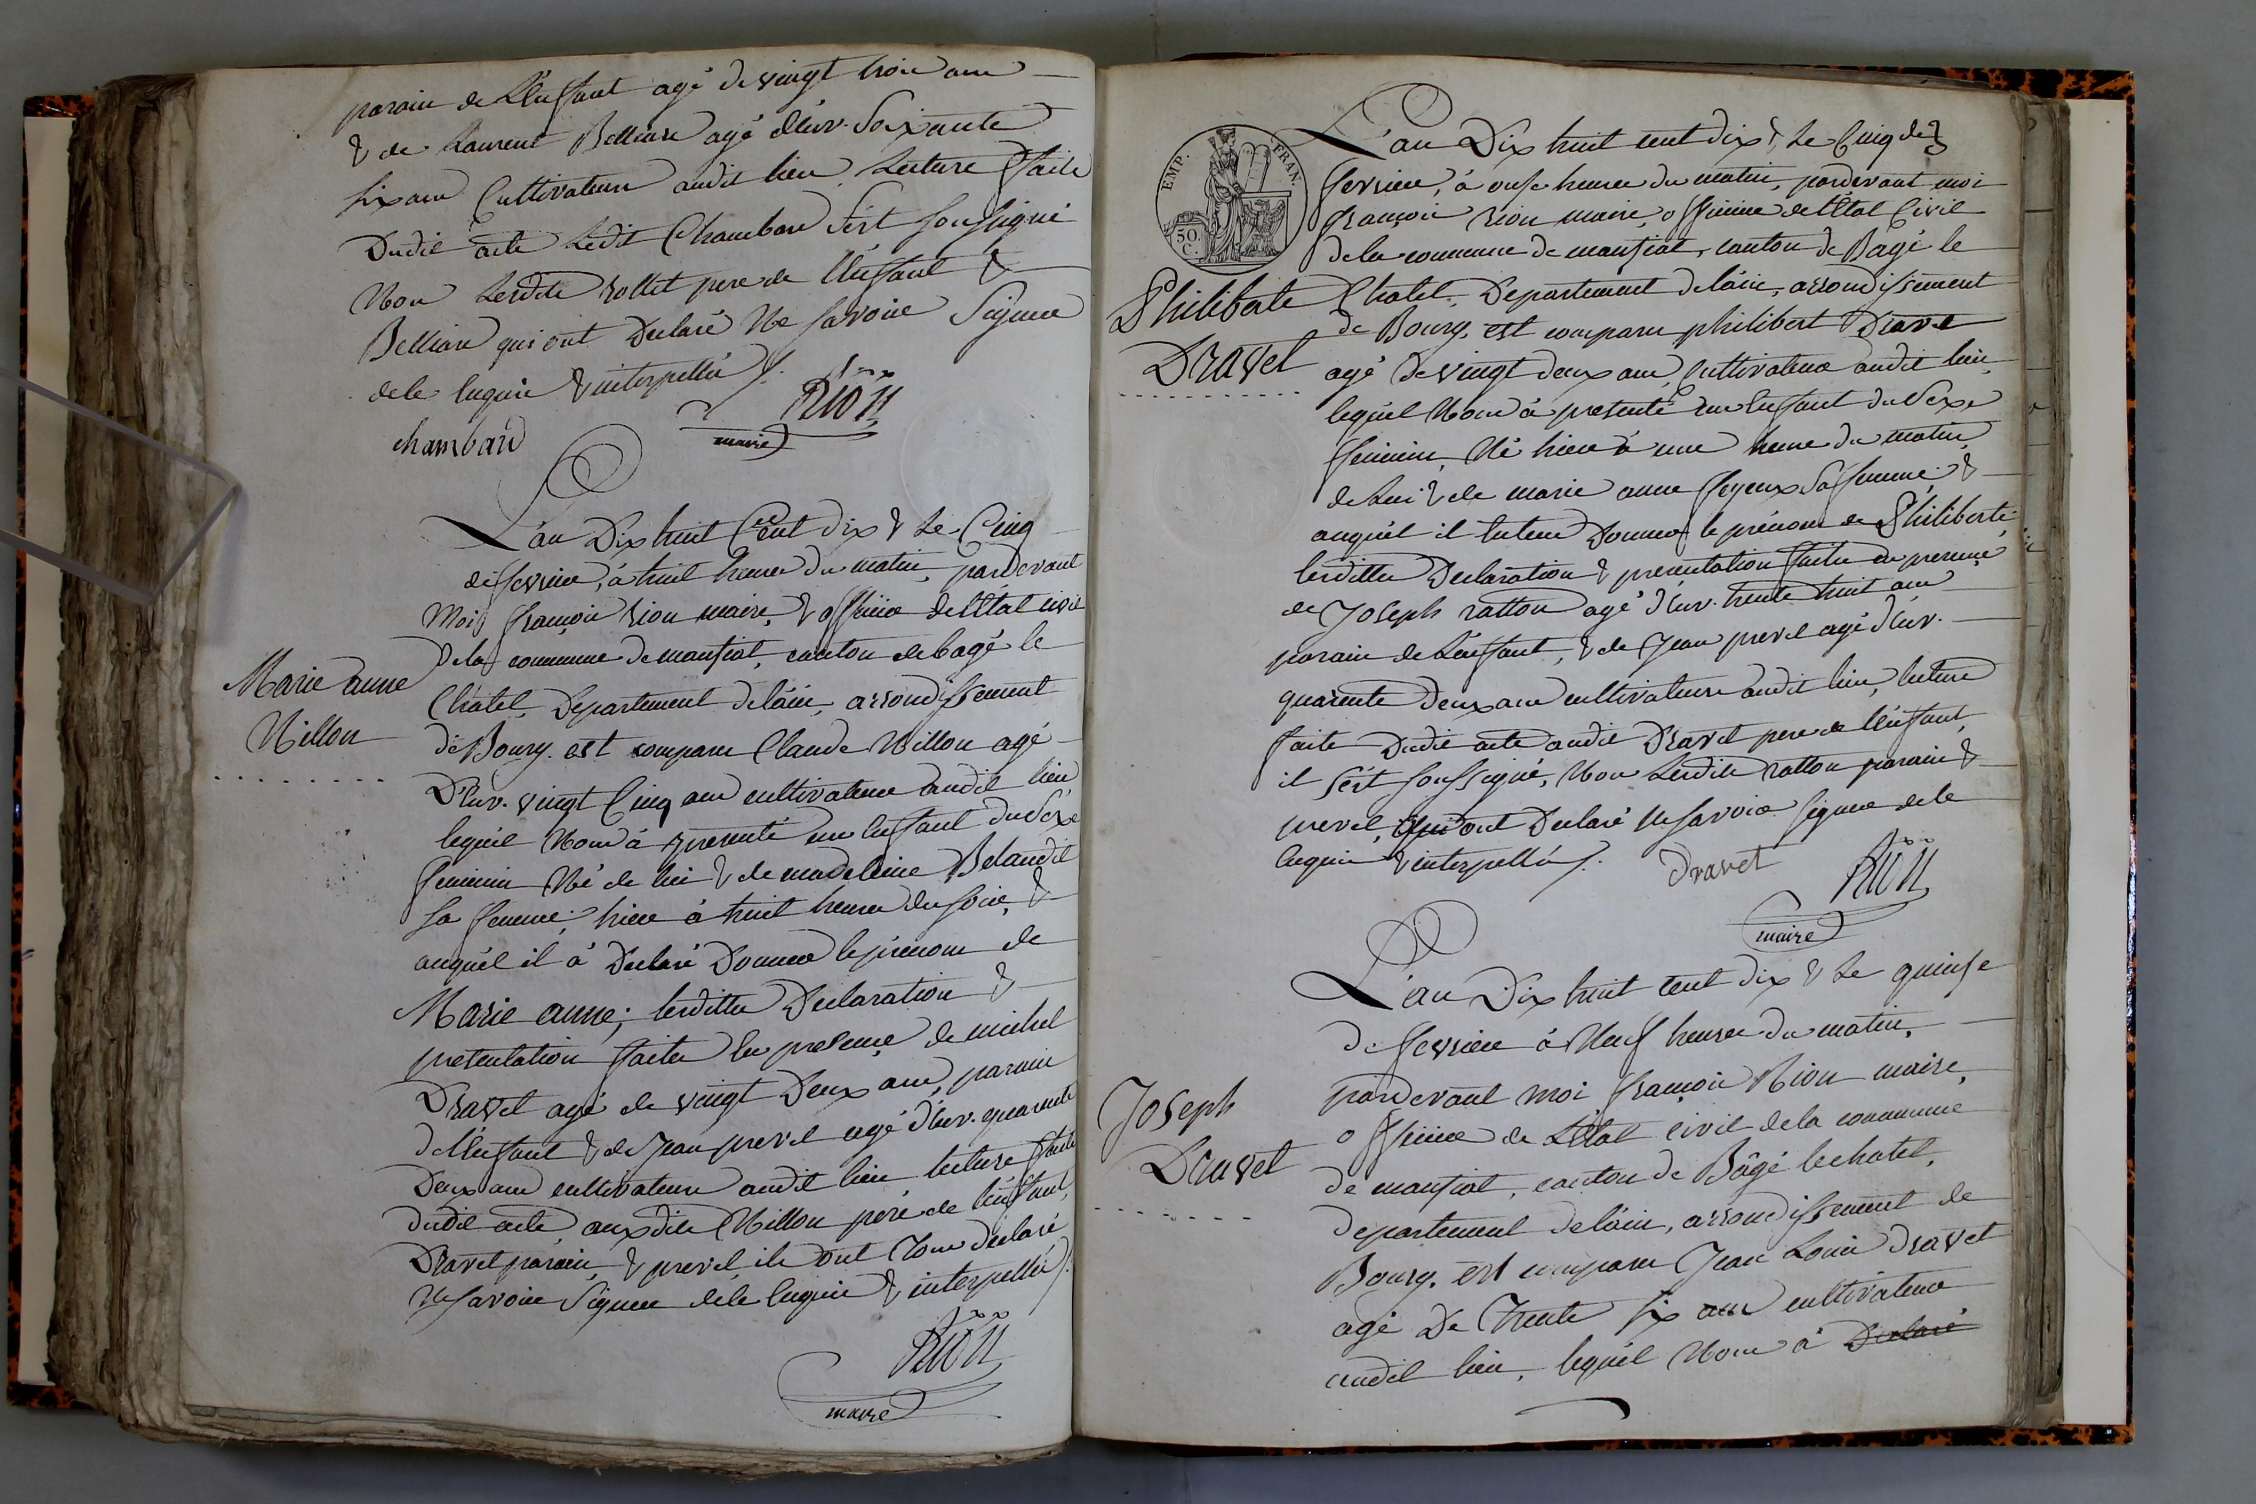 parain de L'enffant agé de vingt trois ans
& de Laurent Belliard agé d'env. Soixante
six ans Cultivateurs audit lieu. Lecture ffaite
Dudit acte Ledit Chambard s'est soussigné
Non Lesdits rollet pere de l'enffant &
Belliard qui ont Declaré Ne savoir Signer
de le enquis & interpellés.
chambard
Rion
maire
L'an Dix huit Cent dix & Le Cinq
de ffevrier, à huit heures du matin, pardevant
Moi ffrançois rion maire, & officier de l'Etat civil
De la commune de mansiat, canton de bagé le
Châtel, Departement de l'ain, arrondissement
de Bourg. est comparu Claude Nillon agé
D'env. vingt Cinq ans cultivateur audit lieu
lequel Nous à presenté un enffant du Sexe
ffeminin Né de lui & de madelaine Belaudit
sa ffemme, hier à huit heures du soir, &
auquel il à Declaré Donner le prenom de
Marie anne; lesdittes Declaration &
presentation ffaites en presence de michel
Dravet agé de vingt Deux ans, parain
de l'enffant & de Jean prevel agé d'env. quarante
Deux ans cultivateurs audit lieu lecture ffaite
dudit acte auxdits Nillon pere de l'enffant,
Dravet parain, & prevel, ils ont Tous declaré
Ne savoir Signer de le enquis & interpellés.
Rion
maire
Marie anne
Nillon
EMP. FRAN.
50.
C.
L'an Dix huit cent dix & Le Cinq de
ffevrier, à onse heures du matin, pardevant moi
ffrançois rion maire, officier de l'Etat Civil
de la commune de mansiat, canton de Bagé le
Chatel, Departement de l'ain, arrondissement
de Bourg, est comparu philibert Dravet
agé de vingt deux ans, Cultivateur audit lieu,
lequel Nous à presenté un Enffant du Sexe
ffeminin, Né hier à une heure du matin,
de Lui & de marie anne ffeyeux Sa ffemme, &
auquel il entend Donner le prénom de Philiberte,
lesdittes Declaration & presentation ffaites en presence
de Joseph ratton agé d'env. trente huit ans
parain de L'enffant, & de Jean prevel agé d'env.
quarante deux ans cultivateurs audit lieu, lecture
ffaite Dudit acte audit Dravet pere de l'enffant,
il s'est soussigné, Non Lesdits ratton parain &
prevel, qui ont Declaré Ne Savoir signer de le
enquis & interpellés.
Dravet
Rion
maire
Philiberte
Dravet
L'an Dix huit cent dix & Le quinse
de ffevrier à Neuf heures du matin,
pardevant moi ffrançois Rion maire,
officier de L'Etat civil de la commune
de mansiat, canton de Bâgé lechatel,
departement de l'ain, arrondissement de
Bourg. est comparu Jean Louis dravet
agé De Trente six ans cultivateur
audit lieu, lequel Nous à Declaré
Joseph
Dravet